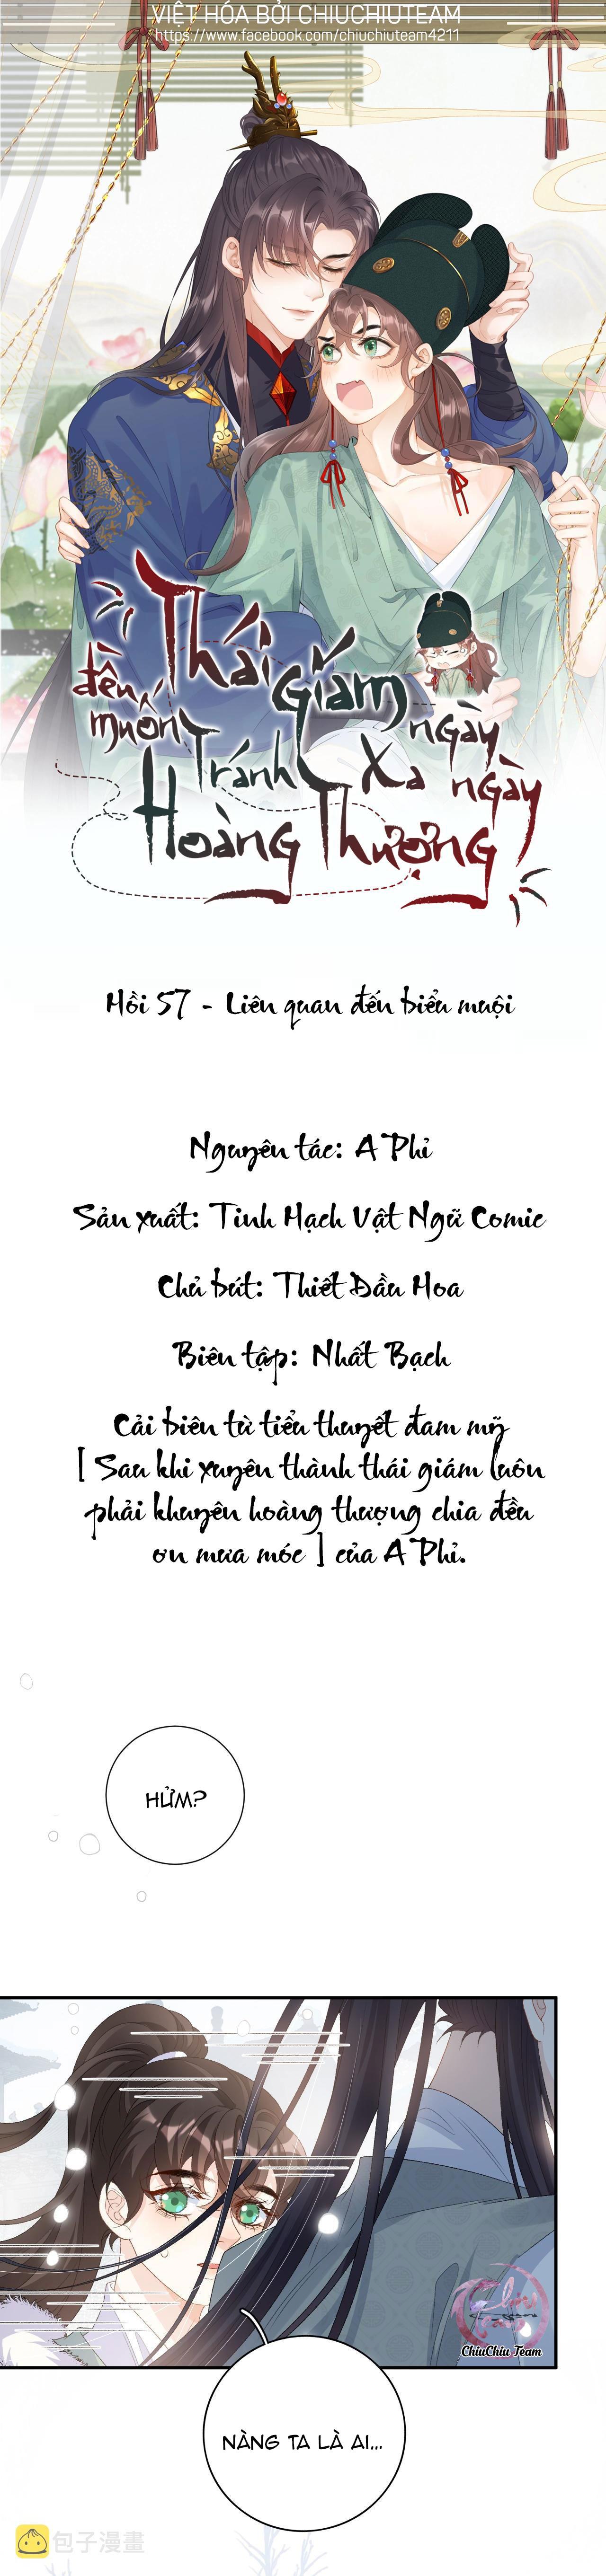 VIỆT HÓA BỞI CHIUCHIUTEAM
https://www.facebook.com/chiuchiuteam4211
Thái Giám ngày ngày
đều muốn Tránh Xa
Hoàng Thượng
Hồi 57 - Liên quan đến biểu muội
Nguyên tác: A Phỉ
Sản xuất: Tinh Hạch Vật Ngữ Comic
Chủ bút: Thiết Đầu Hoa
Biên tập: Nhất Bạch
Cải biên từ tiểu thuyết đam mỹ
[ Sau khi xuyên thành thái giám luôn
phải khuyên hoàng thượng chia đều
ơn mưa móc ] của A Phỉ.
HỬM?
ChiuChiu Team
NÀNG TA LÀ AI...
包子漫画